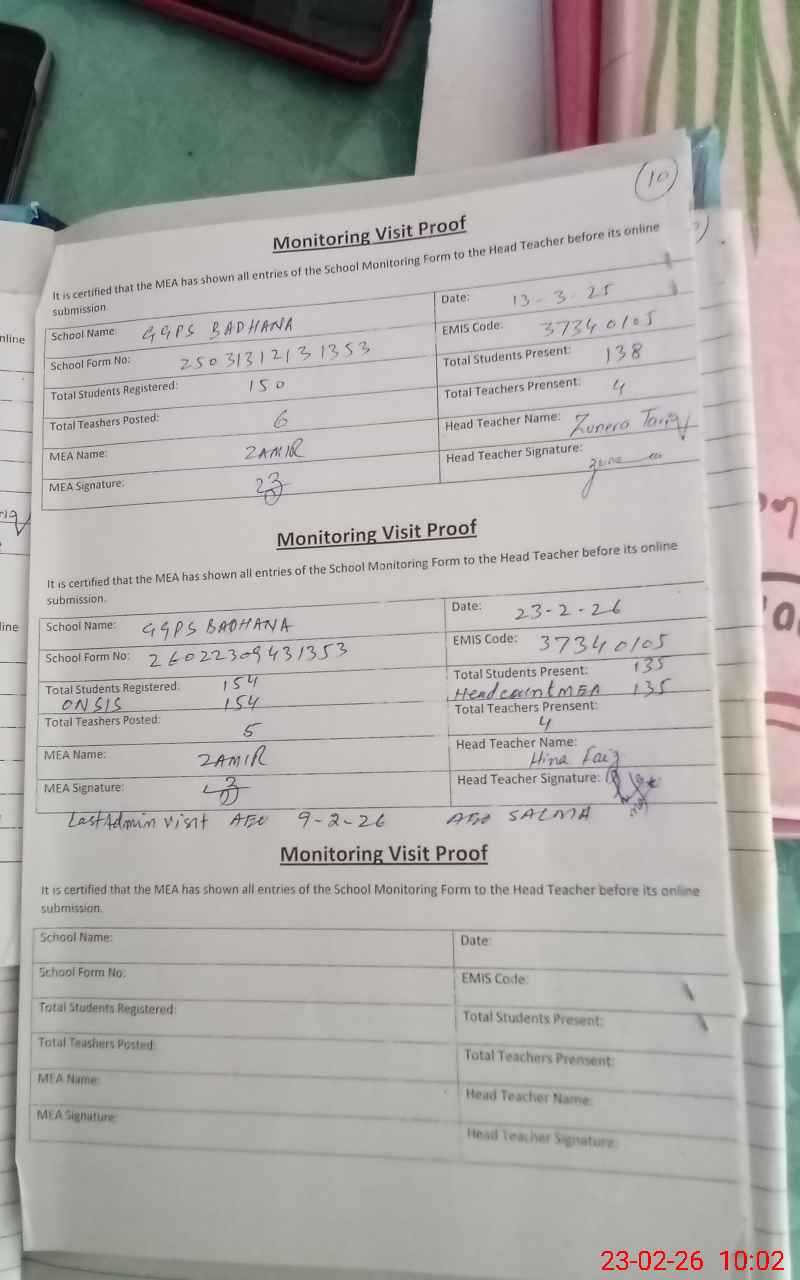 10
Monitoring Visit Proof
It is certified that the MEA has shown all entries of the School Monitoring Form to the Head Teacher before its online
submission.
School Name: GGPS BADHANA
Date: 13-3-25
School Form No: 25031312131353
EMIS Code: 37340105
Total Students Registered: 150
Total Students Present: 138
Total Teashers Posted: 6
Total Teachers Prensent: 4
MEA Name: ZAMIR
Head Teacher Name: Zunera Tariq
MEA Signature:
Head Teacher Signature:
Monitoring Visit Proof
It is certified that the MEA has shown all entries of the School Monitoring Form to the Head Teacher before its online
submission.
School Name: GGPS BADHANA
Date: 23-2-26
School Form No: 26022309431353
EMIS Code: 37340105
Total Students Registered: 154
Total Students Present: 135
ON SIS 154
Headcount MEA 135
Total Teashers Posted: 5
Total Teachers Prensent: 4
MEA Name: ZAMIR
Head Teacher Name: Hina Faiz
MEA Signature:
Head Teacher Signature:
Last Admin visit AEO 9-2-26 AEO SALMA
Monitoring Visit Proof
It is certified that the MEA has shown all entries of the School Monitoring Form to the Head Teacher before its online
submission.
School Name:
Date:
School Form No:
EMIS Code:
Total Students Registered:
Total Students Present:
Total Teashers Posted:
Total Teachers Prensent:
MEA Name:
Head Teacher Name:
MEA Signature:
Head Teacher Signature:
23-02-26 10:02